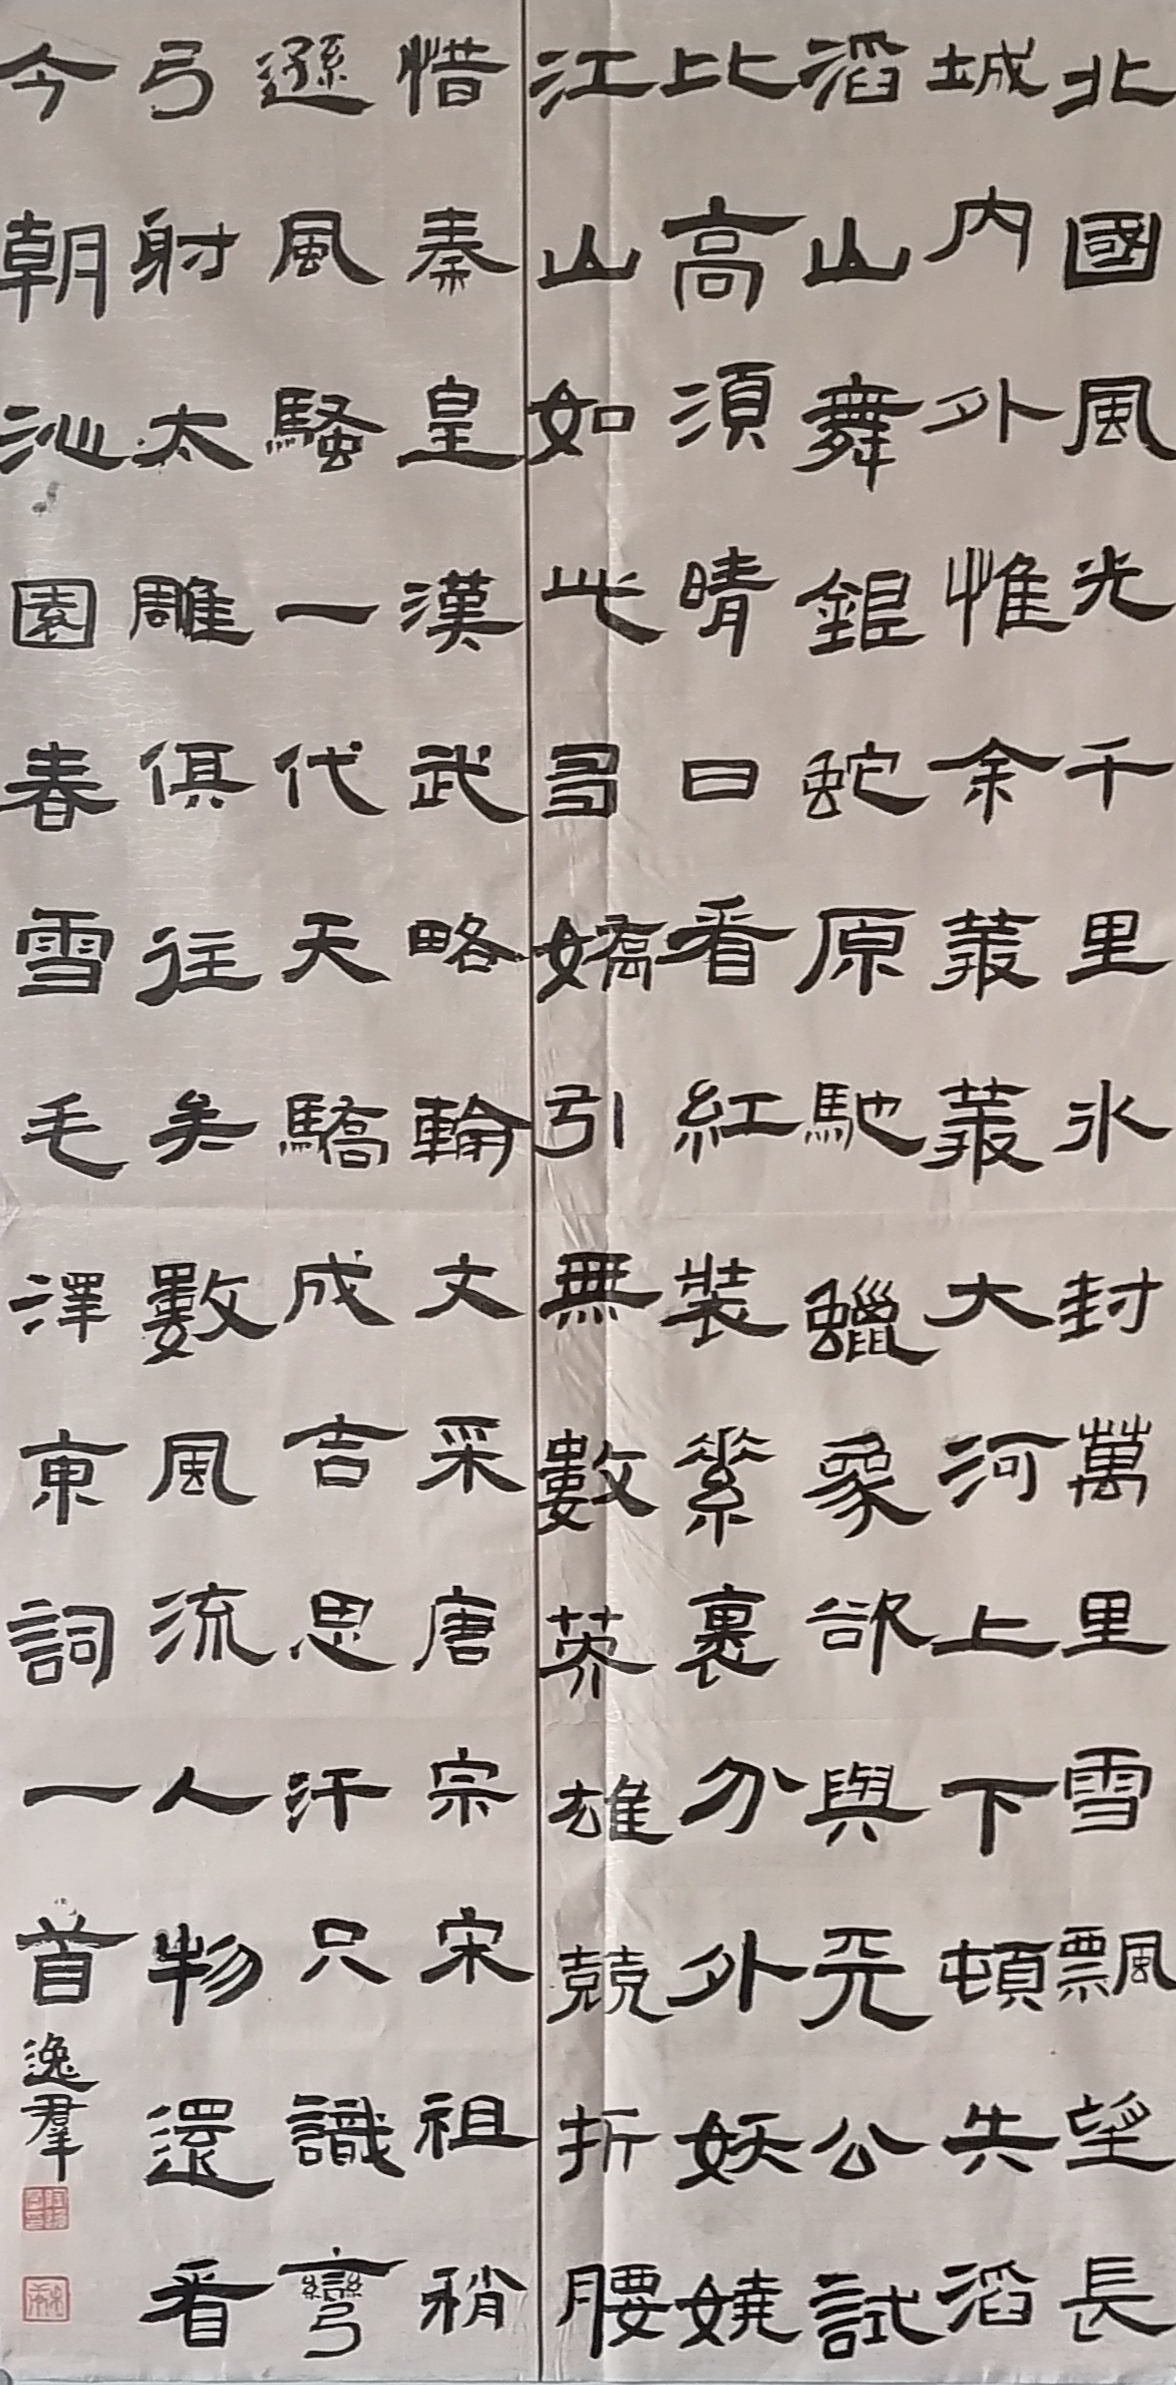 北國風光千里氷封萬里雪飄望長
城內外惟余叢叢大河上下頓失滔
滔山舞銀蛇原馳蠟象欲與天公試
比高須晴日看紅裝素裹分外妖嬈
江山如此多嬌引無數英雄競折腰
惜秦皇漢武略輸文采唐宗宋祖稍
遜風騷一代天驕成吉思汗只識彎
弓射太雕俱往矣數風流人物還看
今朝沁園春雪毛澤東詞一首
逸羣